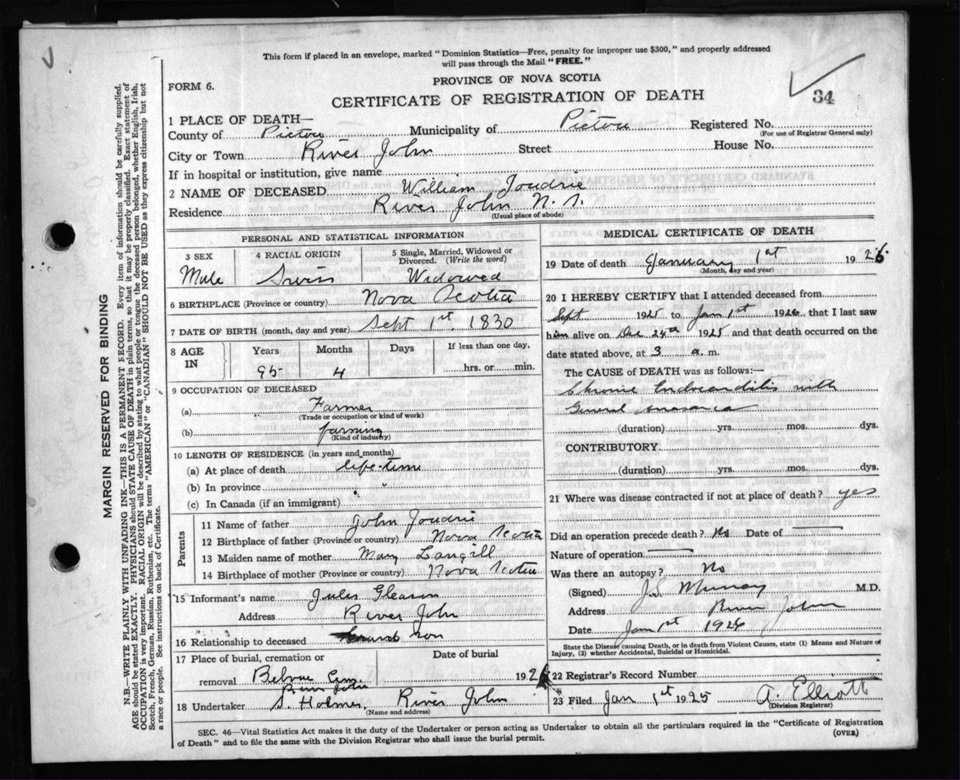 This form if placed in an envelope, marked "Dominion Statistics—Free, penalty for improper use $300," and properly addressed
will pass through the Mail "FREE."
FORM 6.
PROVINCE OF NOVA SCOTIA
CERTIFICATE OF REGISTRATION OF DEATH
34
1 PLACE OF DEATH—
County of Pictou Municipality of Pictou Registered No.
(For use of Registrar General only)
City or Town River John Street House No.
If in hospital or institution, give name
2 NAME OF DECEASED William Joudrie
Residence River John N. S.
(Usual place of abode)
PERSONAL AND STATISTICAL INFORMATION
3 SEX 4 RACIAL ORIGIN 5 Single, Married, Widowed or Divorced. (Write the word)
Male Swiss Widowed
6 BIRTHPLACE (Province or country) Nova Scotia
7 DATE OF BIRTH (month, day and year) Sept 1st. 1830
8 AGE IN Years Months Days If less than one day,
95 4 hrs. or min.
9 OCCUPATION OF DECEASED
(a) Farmer
(Trade or occupation or kind of work)
(b) farming
(Kind of industry)
10 LENGTH OF RESIDENCE (in years and months)
(a) At place of death life-time
(b) In province " "
(c) In Canada (if an immigrant)
Parents
11 Name of father John Joudrie
12 Birthplace of father (Province or country) Nova Scotia
13 Maiden name of mother Mary Langill
14 Birthplace of mother (Province or country) Nova Scotia
15 Informant's name Jules Gleason
Address River John
16 Relationship to deceased Grand son
17 Place of burial, cremation or removal Date of burial
Belvue Cem. River John 1926
18 Undertaker S. Holmes, River John
(Name and address)
MEDICAL CERTIFICATE OF DEATH
19 Date of death January 1st 1926
(Month, day and year)
20 I HEREBY CERTIFY that I attended deceased from
Sept 1925 to Jan 1st 1926 that I last saw
him alive on Dec 24th 1925 and that death occurred on the
date stated above, at 3 a. m.
The CAUSE OF DEATH was as follows:
Chronic Endocarditis with
General Anasarca
(duration) yrs. mos. dys.
CONTRIBUTORY
(duration) yrs. mos. dys.
21 Where was disease contracted if not at place of death? yes
Did an operation precede death? No Date of
Nature of operation
Was there an autopsy? No
(Signed) Murray M.D.
Address River John
Date Jan 1st 1926
State the Disease causing Death, or in death from Violent Causes, state (1) Means and Nature of
Injury, (2) whether Accidental, Suicidal or Homicidal.
22 Registrar's Record Number
23 Filed Jan 1st 1925 A. Elliott
(Division Registrar)
SEC. 46—Vital Statistics Act makes it the duty of the Undertaker or person acting as Undertaker to obtain all the particulars required in the "Certificate of Registration
of Death" and to file the same with the Division Registrar who shall issue the burial permit.
(OVER)
MARGIN RESERVED FOR BINDING
N.B.—WRITE PLAINLY WITH UNFADING INK—THIS IS A PERMANENT RECORD. Every item of information should be carefully supplied.
AGE should be stated EXACTLY. PHYSICIANS should STATE CAUSE OF DEATH in plain terms, so that it may be properly classified. Exact statement of
OCCUPATION is very important. RACIAL ORIGIN will be described by stating to what people or tongue the deceased person belonged, whether English, Irish,
Scotch, French, German, Russian, Ruthenian, etc. The terms "AMERICAN" or "CANADIAN" SHOULD NOT BE USED as they express citizenship but not
a race or people. See instructions on back of Certificate.